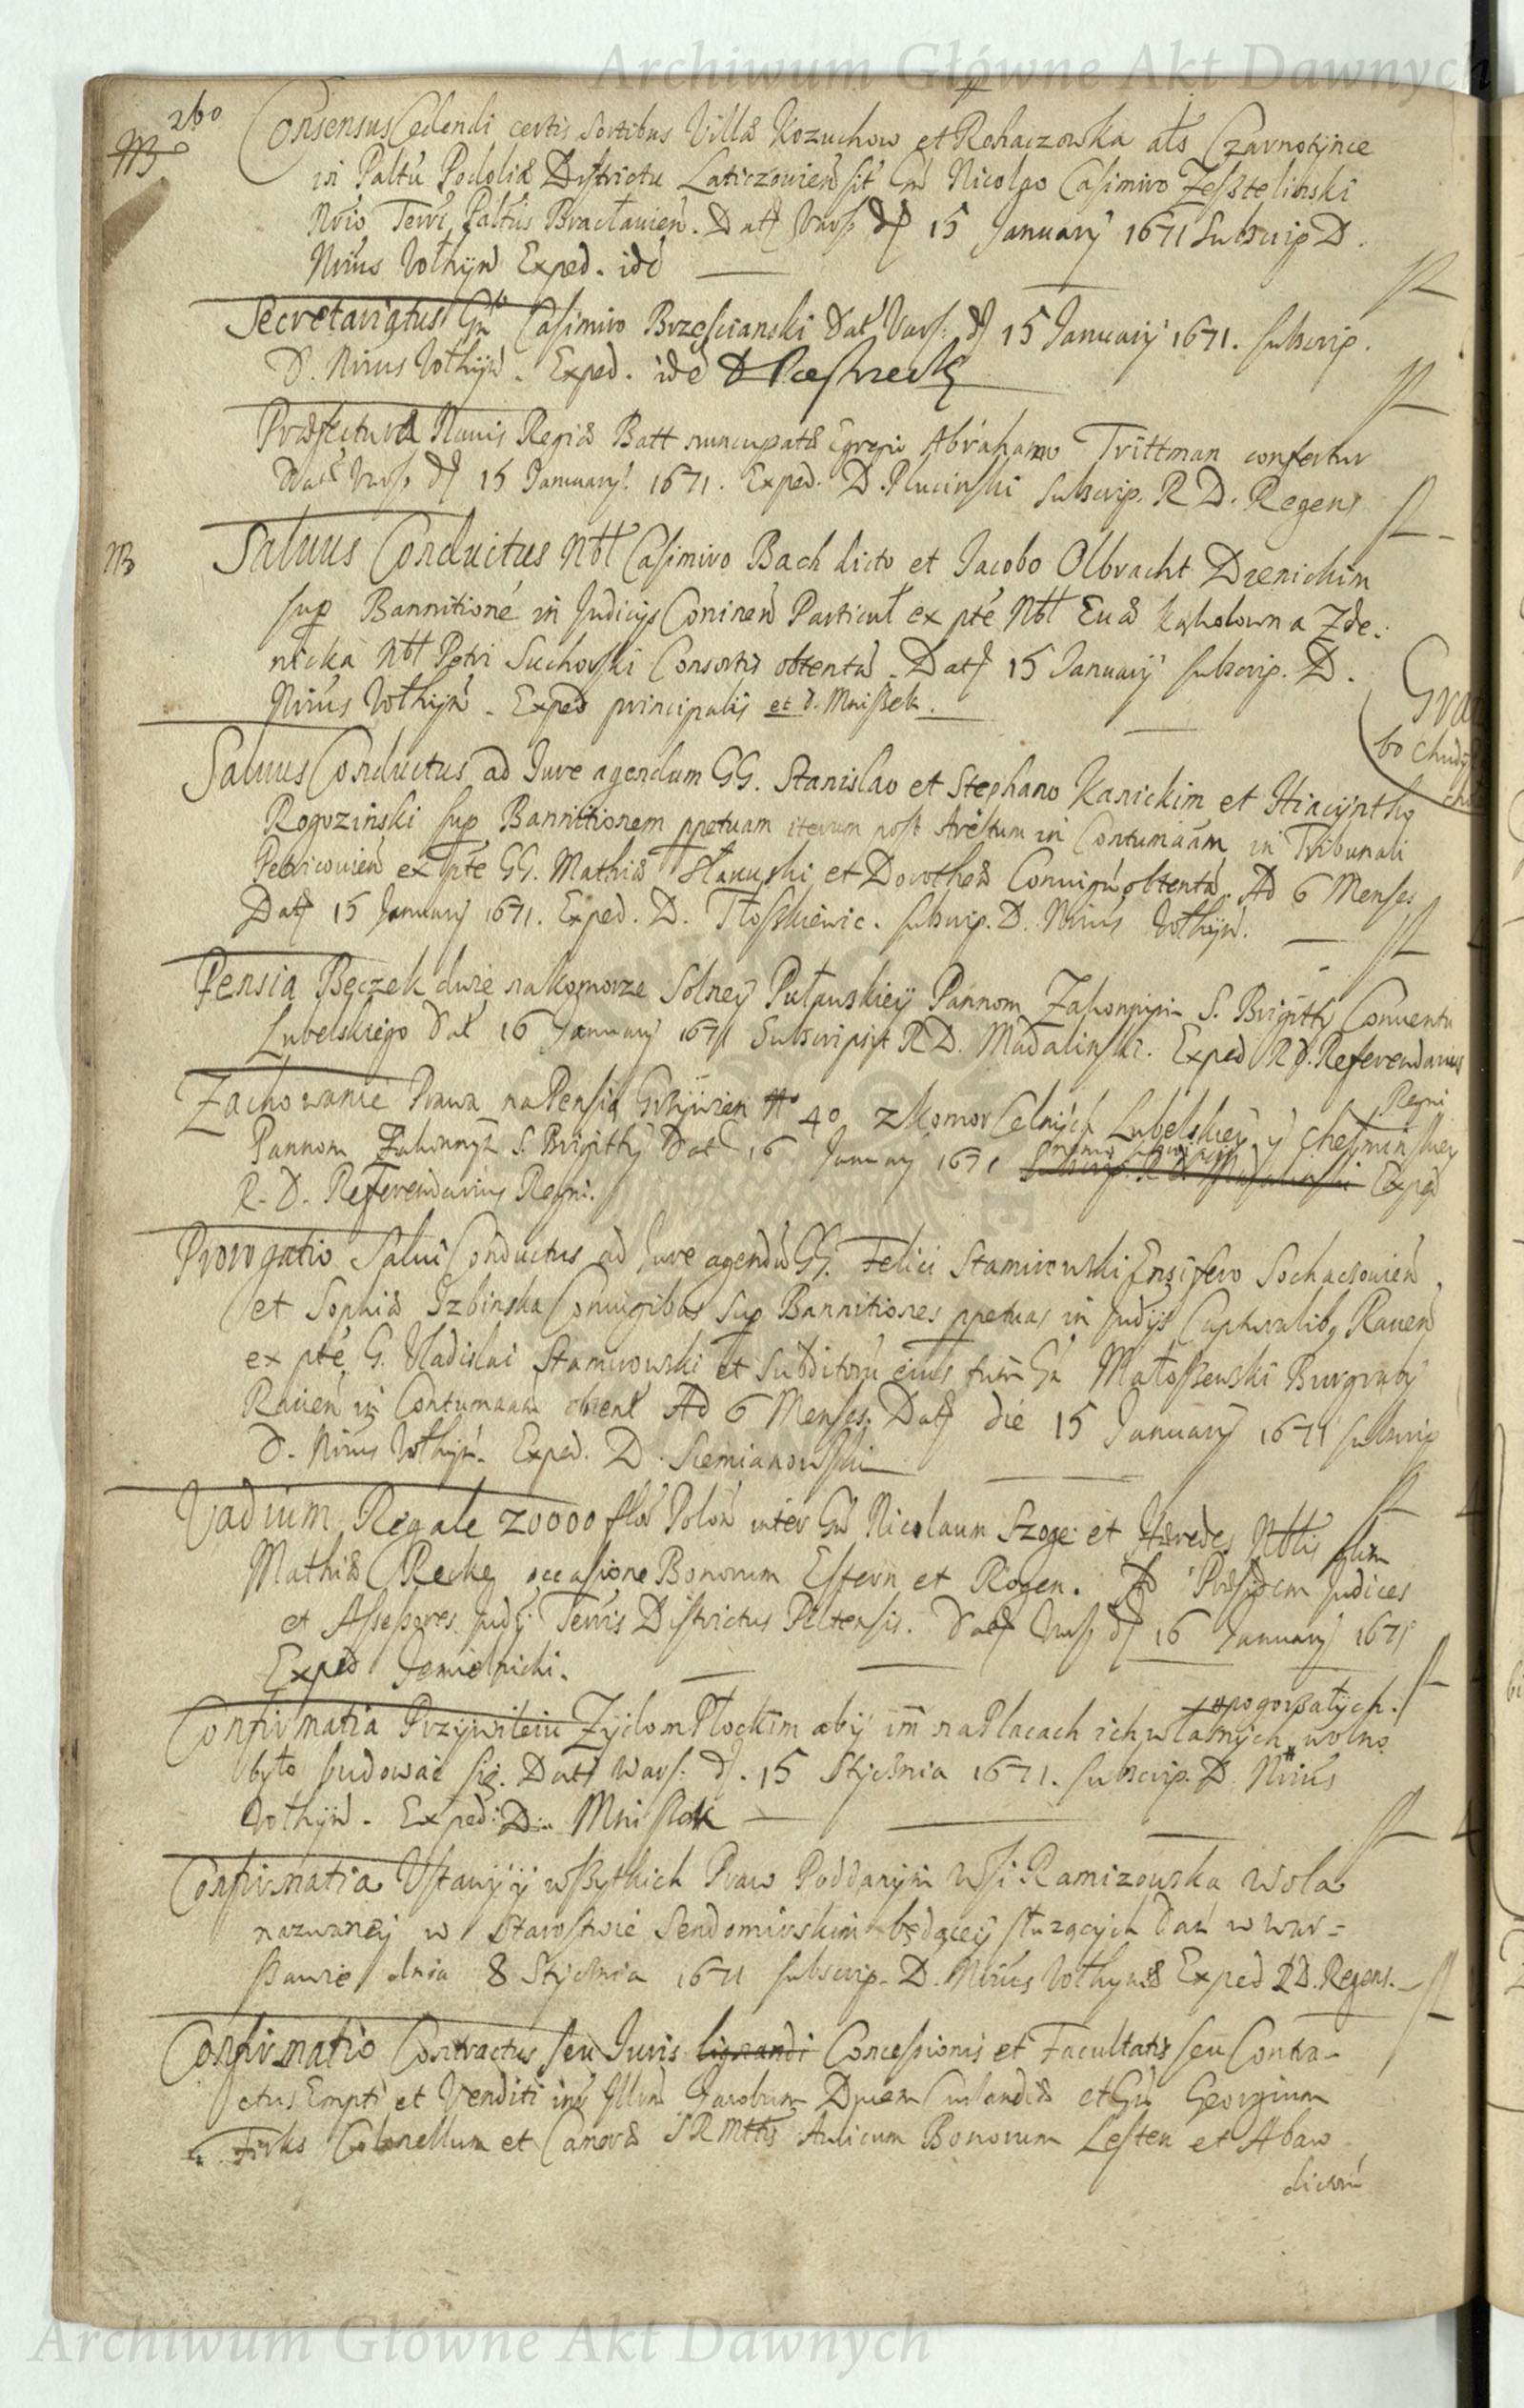 Archiwum Główne Akt Dawnych
260
NB
Consensus Cedendi certis sortibus Villæ Kozuchow et Rohaczowka als Czarnotynce
in Paltu Podoliæ Districtu Laticzoviensi Gn Nicolao Casimiro
Nrio Terrs Paltus Bracłavien. Datt Vars. d 15 January 1671 Subscrip D.
Nrius Vołhyn Exped. idē
Secretariatus Gn Casimiro Brzescianski Dat Vars. d 15 January 1671. subscrip.
D. Nrius Vołhyn. Exped. idē D
Præfectura Navis Regiæ Batt nuncupatæ Egregio Abrahamo Trittman confertur
Dat Vars. d 15 January. 1671. Exped. D. Plucinski subscrip. R D. Regens
NB
Salvus Conductus Nbl Casimiro Bach dicto et Jacobo Olbracht
sup Bannitione in Judicys Coninen Particul ex pte Nbl Evæ Zde-
nicka Nbl Petri Suchorski Consortis obtenta. Datt 15 January subscrip. D.
Nrius Vołhyn. Exped principalis et d. Mniszek.
Salvus Conductus ad Jure agendum GG. Stanislao et Stephano Kanickim et Hiacyntho
Rogozinski sup Bannitionem ppetuam iterum post Arestum in Contumaam in Tribunali
Petricovien ex pte GG. Mathiæ et Dorotheæ Coniugū obtentā. Ad 6 Menses
Datt 15 January 1671. Exped. D. subscrip. D. Nrius Vołhyn.
Pensia Beczek dwie na Komorze Solney Pułtuskiey Pannom Zakonnym S. Brigitty Conventu
Lubelskiego Dat 16 January 1671 Subscripsit R D. Madalinski. Exped R D. Referendarius
Regni
Zachowanie Prawa na Pensią Grzywien No 40 z Komor Celnych Lubelskiey y Chełminskiey
Pannom Zakonnym S. Brigitty Dat 16 January 1671 Subscrip. R D. Madalinski Exped
R. D. Referendarius Regni.
Prorogatio Salvi Conductus ad Jure agendū GG. Felici Stamirowski Ensifero Sochaczovien.
et Sophiæ Izbinska Coniugibus Sup Bannitiones ppetuas in Judys Capturalibq Raven
ex pte G. Vladislai Stamirowski et Subditorū eius tum Gn Małoszewski Burgraby
Ravien in Contumaam obtent Ad 6 Menses. Datt die 15 January 1671 subscrip
D. Nrius Vołhyn. Exped. D. Siemianowski
Vadium Regale 20000 flor Polon inter Gn Nicolaum Szoge et Hæredes Nblis olim
Mathiæ Recke occasione Bonorum Estern et Rogen. Ad Præsidem Judices
et Assessores Judy Terris Districtus Piltensis. Datt Vars. d 16 January 1671
Exped Jemielnicki.
pogorzałych.
Confirmatia Przywileiu Zydom Płockim aby im na Placach ich własnych wolno
było budowac się. Datt Wars. d. 15 Stycznia 1671. subscrip. D. Nrius
Vołhyn. Exped: D. Mniszek
Confirmatia Ustawy y wszytkich Praw Poddanym Wsi Ramizowska Wola
nazwaney w Starostwie Sendomirskim będącey słuzących Dan w War=
szawie dnia 8 Stycznia 1671 subscrip. D. Nrius Vołhyniæ Exped R D. Regens.
Confirmatio Contractus seu Juris lignandi Concessionis et Facultatis seu Contra-
ctus Empti et Venditi int Illm Jacobum Ducem Curlandiæ et Gn Georgium
Firks Colonellum et Cameræ S R Mttis Aulicum Bonorum Lesten et Abaw
dictorū
Gra
bo chudy
Archiwum Główne Akt Dawnych